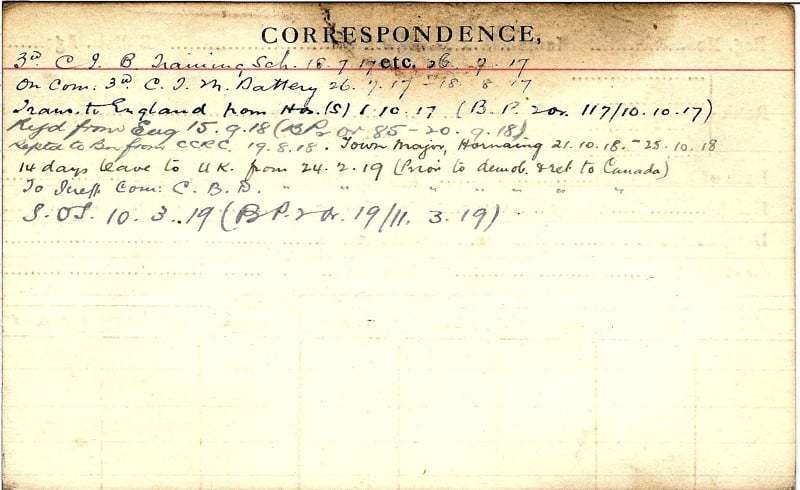 CORRESPONDENCE,
etc.
3rd C I B Training Sch. 18.7.17 26.7.17
On Com. 3rd C. T. M. Battery 26.7.17 - 18.8.17
Trans. to England from Hos. (S) 1.10.17 (B. P. 2 or. 117/10.10.17)
from Eng 15.9.18 (BP2 or 85-20.9.18)
to Bn from CCRC. 19.8.18. Town Major, Hornaing 21.10.18.-25.10.18
14 days leave to U.K. from 24.2.19 (Prior to demob. & ret to Canada)
To Com: C. B. D. " " " " " " " "
S.O.S. 10.3.19 (B P. 2 or. 19/11.3.19)